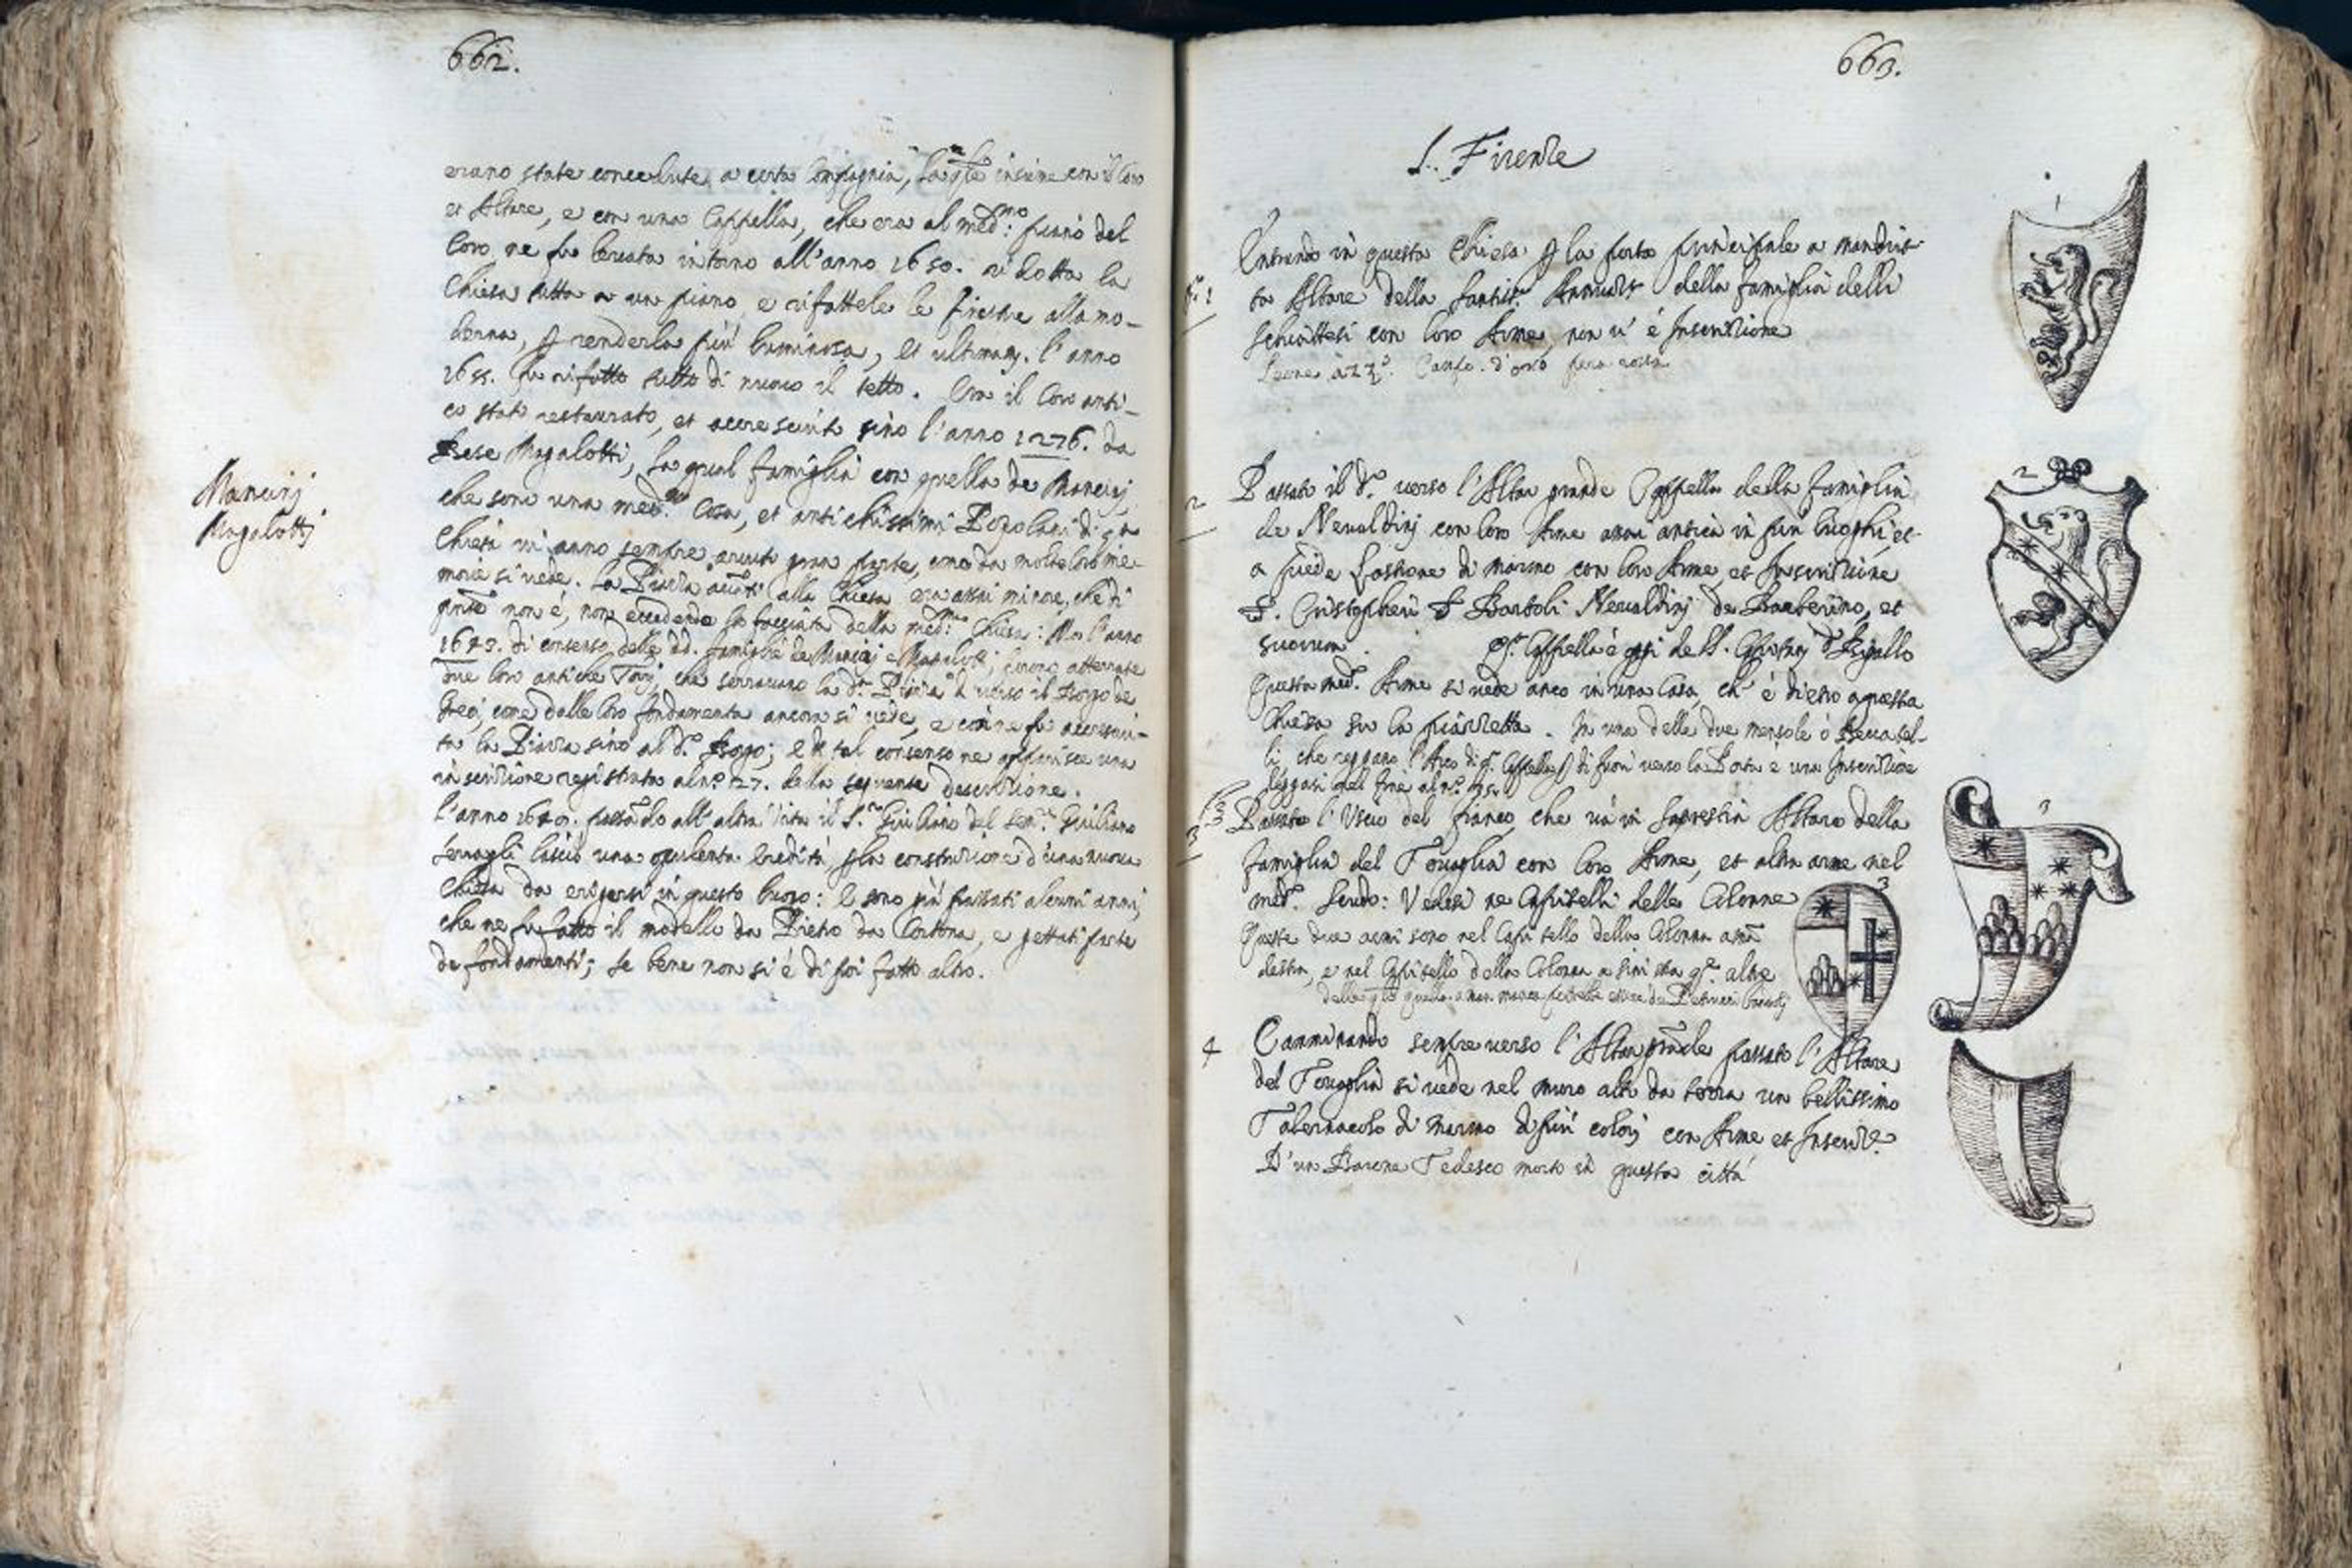 662.
erano state concedute a certa Compagnia, la qle insieme con il Coro
et Altare, e con una Cappella, che era al med:mo piano del
Coro ne fu levata intorno all'anno 1650. ridotta la
Chiesa tutta a un piano, e rifattele le finestre alla mo-
derna, p renderla piu luminosa, et ultimam. l'anno
1655. fu rifatto tutto di nuovo il tetto. Era il Coro anti-
co stato restaurato, et accresciuto sino l'anno 1276. da
Magalotti, la qual famiglia con quella de Mancinj
che sono una med.ma Casa, et antichissimi Popolani di
Chiesa vi anno sempre avuto gran parte, come da molte loro me-
morie si vede. La Piazza avanti alla Chiesa era assai minore, che di
pnte non è, non eccedendo la facciata della med:ma Chiesa: Ma l'anno
di consenso delle dd. famiglie de Mancinj e Magalotti, furono atterrate
due loro antiche Torri, che serravano la da Piazza verso il Borgo de
Greci, come dalle loro fondamenta ancora si vede, e così ne fu accresciu-
ta la Piazza sino al do Borgo; e di tal consenso ne apparisce una
inscrizione registrata al no 27. della seguente descrizione.
l'anno passando all'altra Vita il S.r Giuliano del Sen.re Giuliano
Serragli lasciò una opulenta Eredità, p la construzione d'una nuova
Chiesa da erigersi in questo luogo: E sono già passati alcuni anni,
che ne fu fatto il modello da Pietro da Cortona, e gettati parte
de fondamenti; se bene non si è di poi fatto altro.
Mancinj
Magalotti
663.
S. Firenze
Entrando in questa Chiesa p la porta principale a mandrit-
ta Altare della Santis.ma Annunz.ta della famiglia delli
Schiattesi con loro Arme, non vi è Inscrizione
Leone Campo d'oro fera rossa
1
2
Passato il do verso l'Altar grande Cappella della famiglia
de Nevaldinj con loro Arme assai antica in piu luoghi, et
a piede Lastrone di marmo con loro Arme, et Inscrizione
S. Cristopheri S Bartoli Nevaldinj de Barberino, et
suorum.
qa Cappella è oggi de SS. Capitanj d. Bigallo
Questa med.a Arme si vede anco in una Casa, ch' è dietro a questa
Chiesa su la piazzetta. In una delle due mensole ò Beccatel-
li che reggano l'Arco di qa Cappella di fuori verso la Porta è una Inscrizione
leggasi nel fine al no
2
3
Passato l'Uscio del fianco, che và in Sagrestia Altare della
famiglia del Tovaglia con loro Arme, et altra arme nel
med.o Scudo: Vedesi ne Capitelli delle Colonne
Queste due armi sono nel Capitello della Colonna a man
destra, e nel Capitello della Colonna a sinistra qe altre
3
3
4
Camminando sempre verso l'Altar grande passato l'Altare
del Tovaglia si vede nel muro alto da terra un bellissimo
Tabernacolo di marmo di piu colorj con Arme, et Inscriz.e
D'un Barone Tedesco morto in questa città